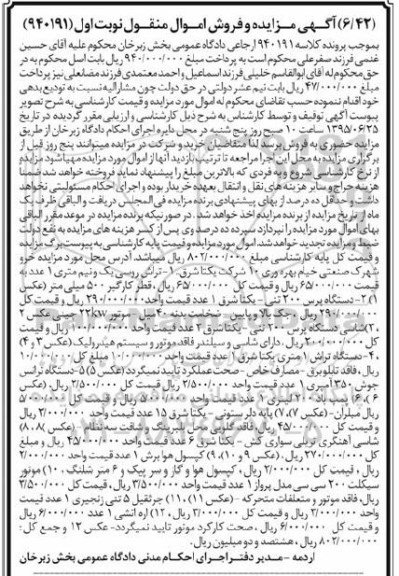 (۶/۴۲) آگهی مزایده و فروش اموال منقول نوبت اول (۹۴۰۱۹۱)
بموجب پرونده کلاسه ۹۴۰۱۹۱ ارجاعی دادگاه عمومی بخش زبرخان محکوم علیه آقای حسین
غنمی فرزند صفرعلی محکوم است به پرداخت مبلغ ۹۴۰/۰۰۰/۰۰۰ ریال بابت اصل محکوم به در
حق محکوم له آقای ابوالقاسم خلیلی فرزند اسماعیل و احمد معتمدی فرزند مضاعلی نیز پرداخت
مبلغ ۴۷/۰۰۰/۰۰۰ ریال بابت نیم عشر دولتی در حق دولت چون مشارالیه نسبت به تودیع بدهی
خود اقدام ننموده حسب تقاضای محکوم له اموال مورد مزایده و قیمت کارشناسی به شرح تصویر
پیوست آگهی توقیف و توسط کارشناس به شرح ذیل کارشناسی و ارزیابی مقرر گردیده در تاریخ
۱۳۹۵/۰۶/۲۵ ساعت ۱۰ صبح روز پنج شنبه در محل دایره اجرای احکام دادگاه زبرخان از طریق
مزایده حضوری به فروش برسد لذا متقاضیان خرید و شرکت در مزایده میتوانند پنج روز قبل از
برگزاری مزایده به محل این اجرا مراجعه تا ترتیب بازدید آنها از اموال مورد مزایده مهیا شود مزایده
از نرخ کارشناسی شروع و به فردی که بالاترین مبلغ را پیشنهاد نماید فروخته خواهد شد ضمنا
هزینه حراج و سایر هزینه های نقل و انتقال بعهده خریدار بوده و اجرای احکام مسئولیتی نخواهد
داشت. حداقل ده درصد از بهای پیشنهادی برنده مزایده فی المجلس دریافت و الباقی ظرف یک
ماه از تاریخ مزایده از برنده مزایده اخذ خواهد شد. در صورتیکه برنده مزایده در موعد مقرر الباقی
بهای اموال مورد مزایده را نپردازد سپرده ده درصد وی پس از کسر هزینه های مزایده به نفع دولت
ضبط و مزایده تجدید خواهد شد. اموال مورد مزایده و قیمت پایه کارشناسی به پیوست برگ مزایده
و قیمت کل پایه کارشناسی مبلغ ۸۰۲/۰۰۰/۰۰۰ ریال میباشد. آدرس محل مورد مزایده خرو
شهرک صنعتی خیام بهره وری ۱۰ شرکت یکتا شرق ۱- تراش روسی یک ونیم متری ۱ عدد به
قیمت ۶۵/۰۰۰/۰۰۰ ریال و قیمت کل ۶۵/۰۰۰/۰۰۰ ریال، قطر کارگیر ۵۰۰ میلی متر (عکس
۱) ۲- دستگاه پرس ۲۰۰ تنی - یکتا شرق ۱ عدد قیمت واحد ۲۹۰/۰۰۰/۰۰۰ ریال و قیمت کل
۲۹۰/۰۰۰/۰۰۰ ریال، جک بالا و پایین - ضخیمت بدنه ۴۰ میل - موتور ۲۲kw چینی عکس ۲
۳) شاسی دستگاه پرس ۲۰۰ تنی - یکتا شرق ۲ عدد قیمت واحد ۱۰۰/۰۰۰/۰۰۰ ریال و قیمت
کل ۲۰۰/۰۰۰/۰۰۰ ریال. دارای شاسی و سیلندر فاقد موتور و سیستم هیدرولیک (عکس ۳ و ۴)
۴- دستگاه تراش ۱ متری یکتا شرق ۱ عدد قیمت واحد ۱۰/۰۰۰/۰۰۰ مبلغ کل ۱۰/۰۰۰/۰۰۰
ریال، فاقد تابلو برق - مصارف خاص - صحت عملکرد تایید نمیگردد (عکس ۵) ۵- دستگاه ترانس
جوش ۳۵۰ آمپری ۱ عدد قیمت واحد ۲/۵۰۰/۰۰۰ ریال قیمت کل ۲/۵۰۰/۰۰۰ ریال. (عکس
ریال میلران- (عکس ۷) ۷) پایه دار ستونی - یکتا شرق ۱۵ عدد قیمت واحد ۳/۰۰۰/۰۰۰ ریال
و قیمت کل ۴۵/۰۰۰/۰۰۰ ریال، فاقد گلویی، تاج، بلبرینگ و شفت سه نظام (عکس ۸) ۸)
شاسی آهنگری تریلی سواری کش - یکتا شرق ۶ عدد قیمت واحد ۴۵/۰۰۰/۰۰۰ ریال و مبلغ
کل ۲۷۰/۰۰۰/۰۰۰ ریال. (عکس ۹ و ۱۰)، ۹) کپسول هوا برش ۱ عدد قیمت واحد ۲/۰۰۰/۰۰۰
ریال، قیمت کل ۲/۰۰۰/۰۰۰ ریال، کپسول هوا و گاز و سر پیک و ۶ متر شلنگ، ۱۰) موتور
سیکلت ۲۰۰ سی سی مدل پرواز ۱ عدد قیمت واحد ۳/۵۰۰/۰۰۰ ریال، قیمت کل ۳/۵۰۰/۰۰۰
ریال، فاقد موتور و متعلقات متحرکه - (عکس ۱۱)، ۱۱) جرثقیل ۵ تنی زنجیری ۱ عدد قیمت
واحد ۲/۰۰۰/۰۰۰ ریال و قیمت کل ۲/۰۰۰/۰۰۰ ریال، ۱۲) اره آتشی ۱ عدد ۶/۰۰۰/۰۰۰ ریال
و قیمت کل ۶/۰۰۰/۰۰۰ ریال، صحت کارکرد موتور تایید نمیگردد- عکس ۱۲ و جمع کل:
۸۰۲/۰۰۰/۰۰۰ ریال، هشتصد و دو میلیون ریال.
ازدمه - مدیر دفتر اجرای احکام مدنی دادگاه عمومی بخش زبرخان